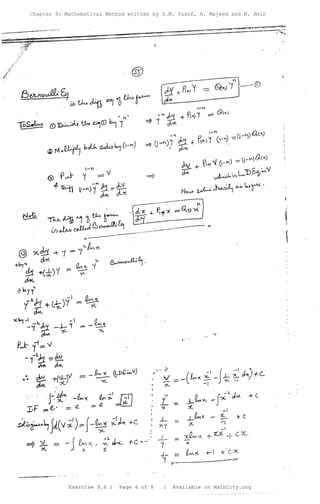 Chapter 9: Mathematical Method written by S.M. Yusuf, A. Majeed and M. Amin
(25)
Bernoulli Eq
is the diff eq of the form dy/dx + P(x) y = Q(x) y^n —①
To Solve ① Divide the eq ① by y^n ⇒ y^-n dy/dx + P(x) y^1-n = Q(x)
② Multiply both sides by (1-n) ⇒ (1-n) y^-n dy/dx + P(x) y^1-n (1-n) = (1-n) Q(x)
③ Put y^1-n = v
& Diff (1-n) y^-n dy/dx = dv/dx ⇒ dv/dx + P(x) v (1-n) = (1-n) Q(x)
which is L.D.Eq in v
Now solve it easily as before.
Note The diff eq of the form dx/dy + P(y) x = Q(y) x^n
is also called Bernoulli Eq
x dy/dx + y = y² ln x
÷ by x
dy/dx + (1/x) y = ln x/x y² Bernoulli Eq.
÷ by y²
y^-2 dy/dx + (1/x) y^-1 = ln x/x
x by -1
- y^-2 dy/dx - 1/x y^-1 = - ln x/x
Put y^-1 = v
- y^-2 dy/dx = dv/dx
∴ dv/dx + (-1/x) v = - ln x/x (L.D.E in v)
I.F = e^∫-1/x dx = e^-ln x = e^ln x^-1 = x^-1
∫d(v x^-1) = ∫ - ln x/x x^-1 dx + c
⇒ v/x = - ∫ ln x . x^-2 dx + c
v/x = - (ln x x^-1/-1 - ∫ 1/x x^-1/-1 dx) + c
y^-1/x = 1/x ln x - ∫ x^-2 dx + c
1/xy = 1/x ln x - x^-1/-1 + c
1/y = x ln x/x + x x^-1 + cx
1/y = ln x + 1 + cx
Exercise 9.6 : Page 4 of 8 : Available on MathCity.org